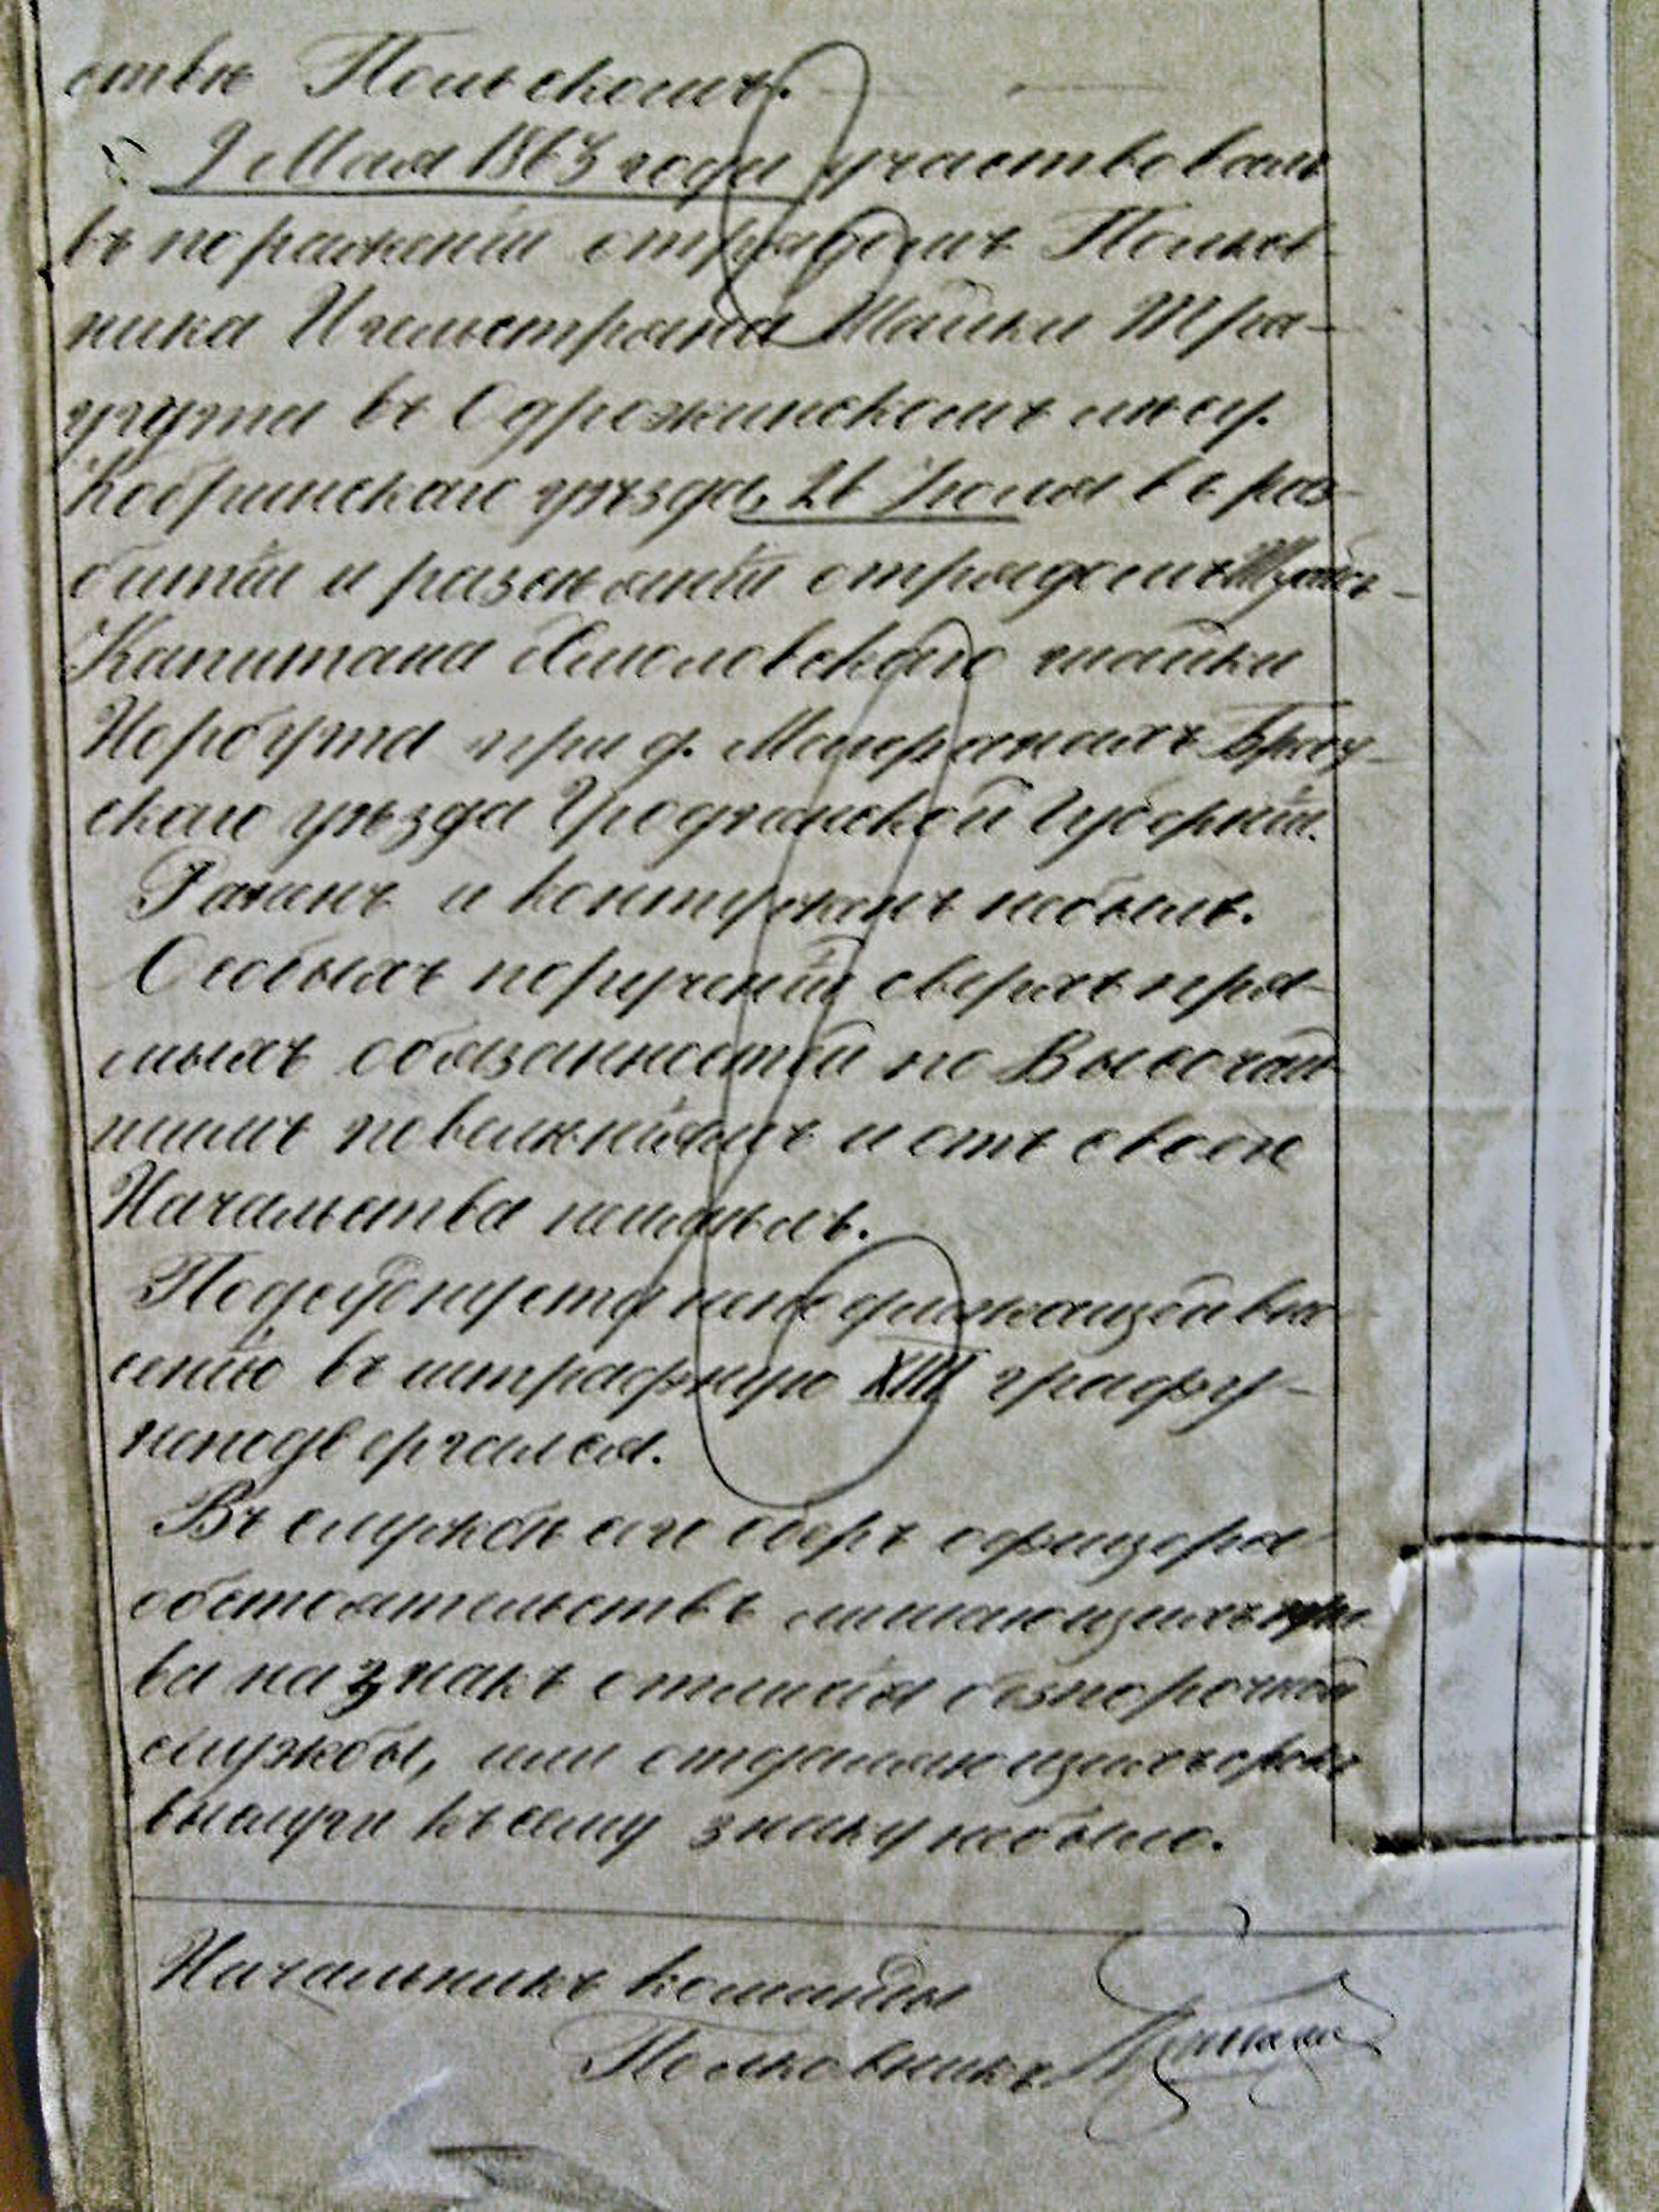 ствѣ Польскомъ.
9 Мая 1863 года участвовалъ
въ пораженіи отрядомъ Полков-
ника Игельстрома Шайки Тра-
угута въ Одрожинскомъ лѣсу.
Кобринскаго уѣзда, 26 Іюля въ раз-
битіи и разсѣяніи отрядомъ
Капитана шайки
Нарбута при д. Брест-
скаго уѣзда Гродненской Губерніи.
Раненъ и контуженъ небылъ.
Особыхъ порученій сверхъ пря-
мыхъ обязанностей по Высочай-
шимъ повелѣніямъ и отъ своего
Начальства неимѣлъ.
Подсудиму неподлежащей вне-
сенію въ штрафную XIII графу-
неподвергался.
Въ службѣ сего оберъ офицера
обстоятельствъ лишающихъ пра-
ва на знакъ отличія безпорочной
службы, или отдаляющихъ срокъ
выслуги къ сему знаку небыло.
Начальникъ команды
Полковникъ